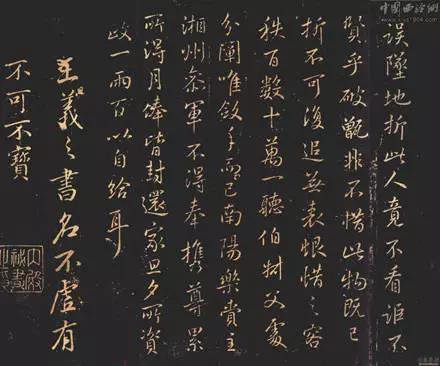 誤墜地折此人竟不看詎不
賢乎破甑非不惜此物既已
折不可復追無表恨惜之容
秩百數十萬一聽伯樹父處
分闔唯斂手而已南陽樂賞主
湘州叅軍不得奉攜尊累
所得月俸皆封還家旦夕所資
政一兩百以自給耳
王羲之書名不虛有
不可不寶